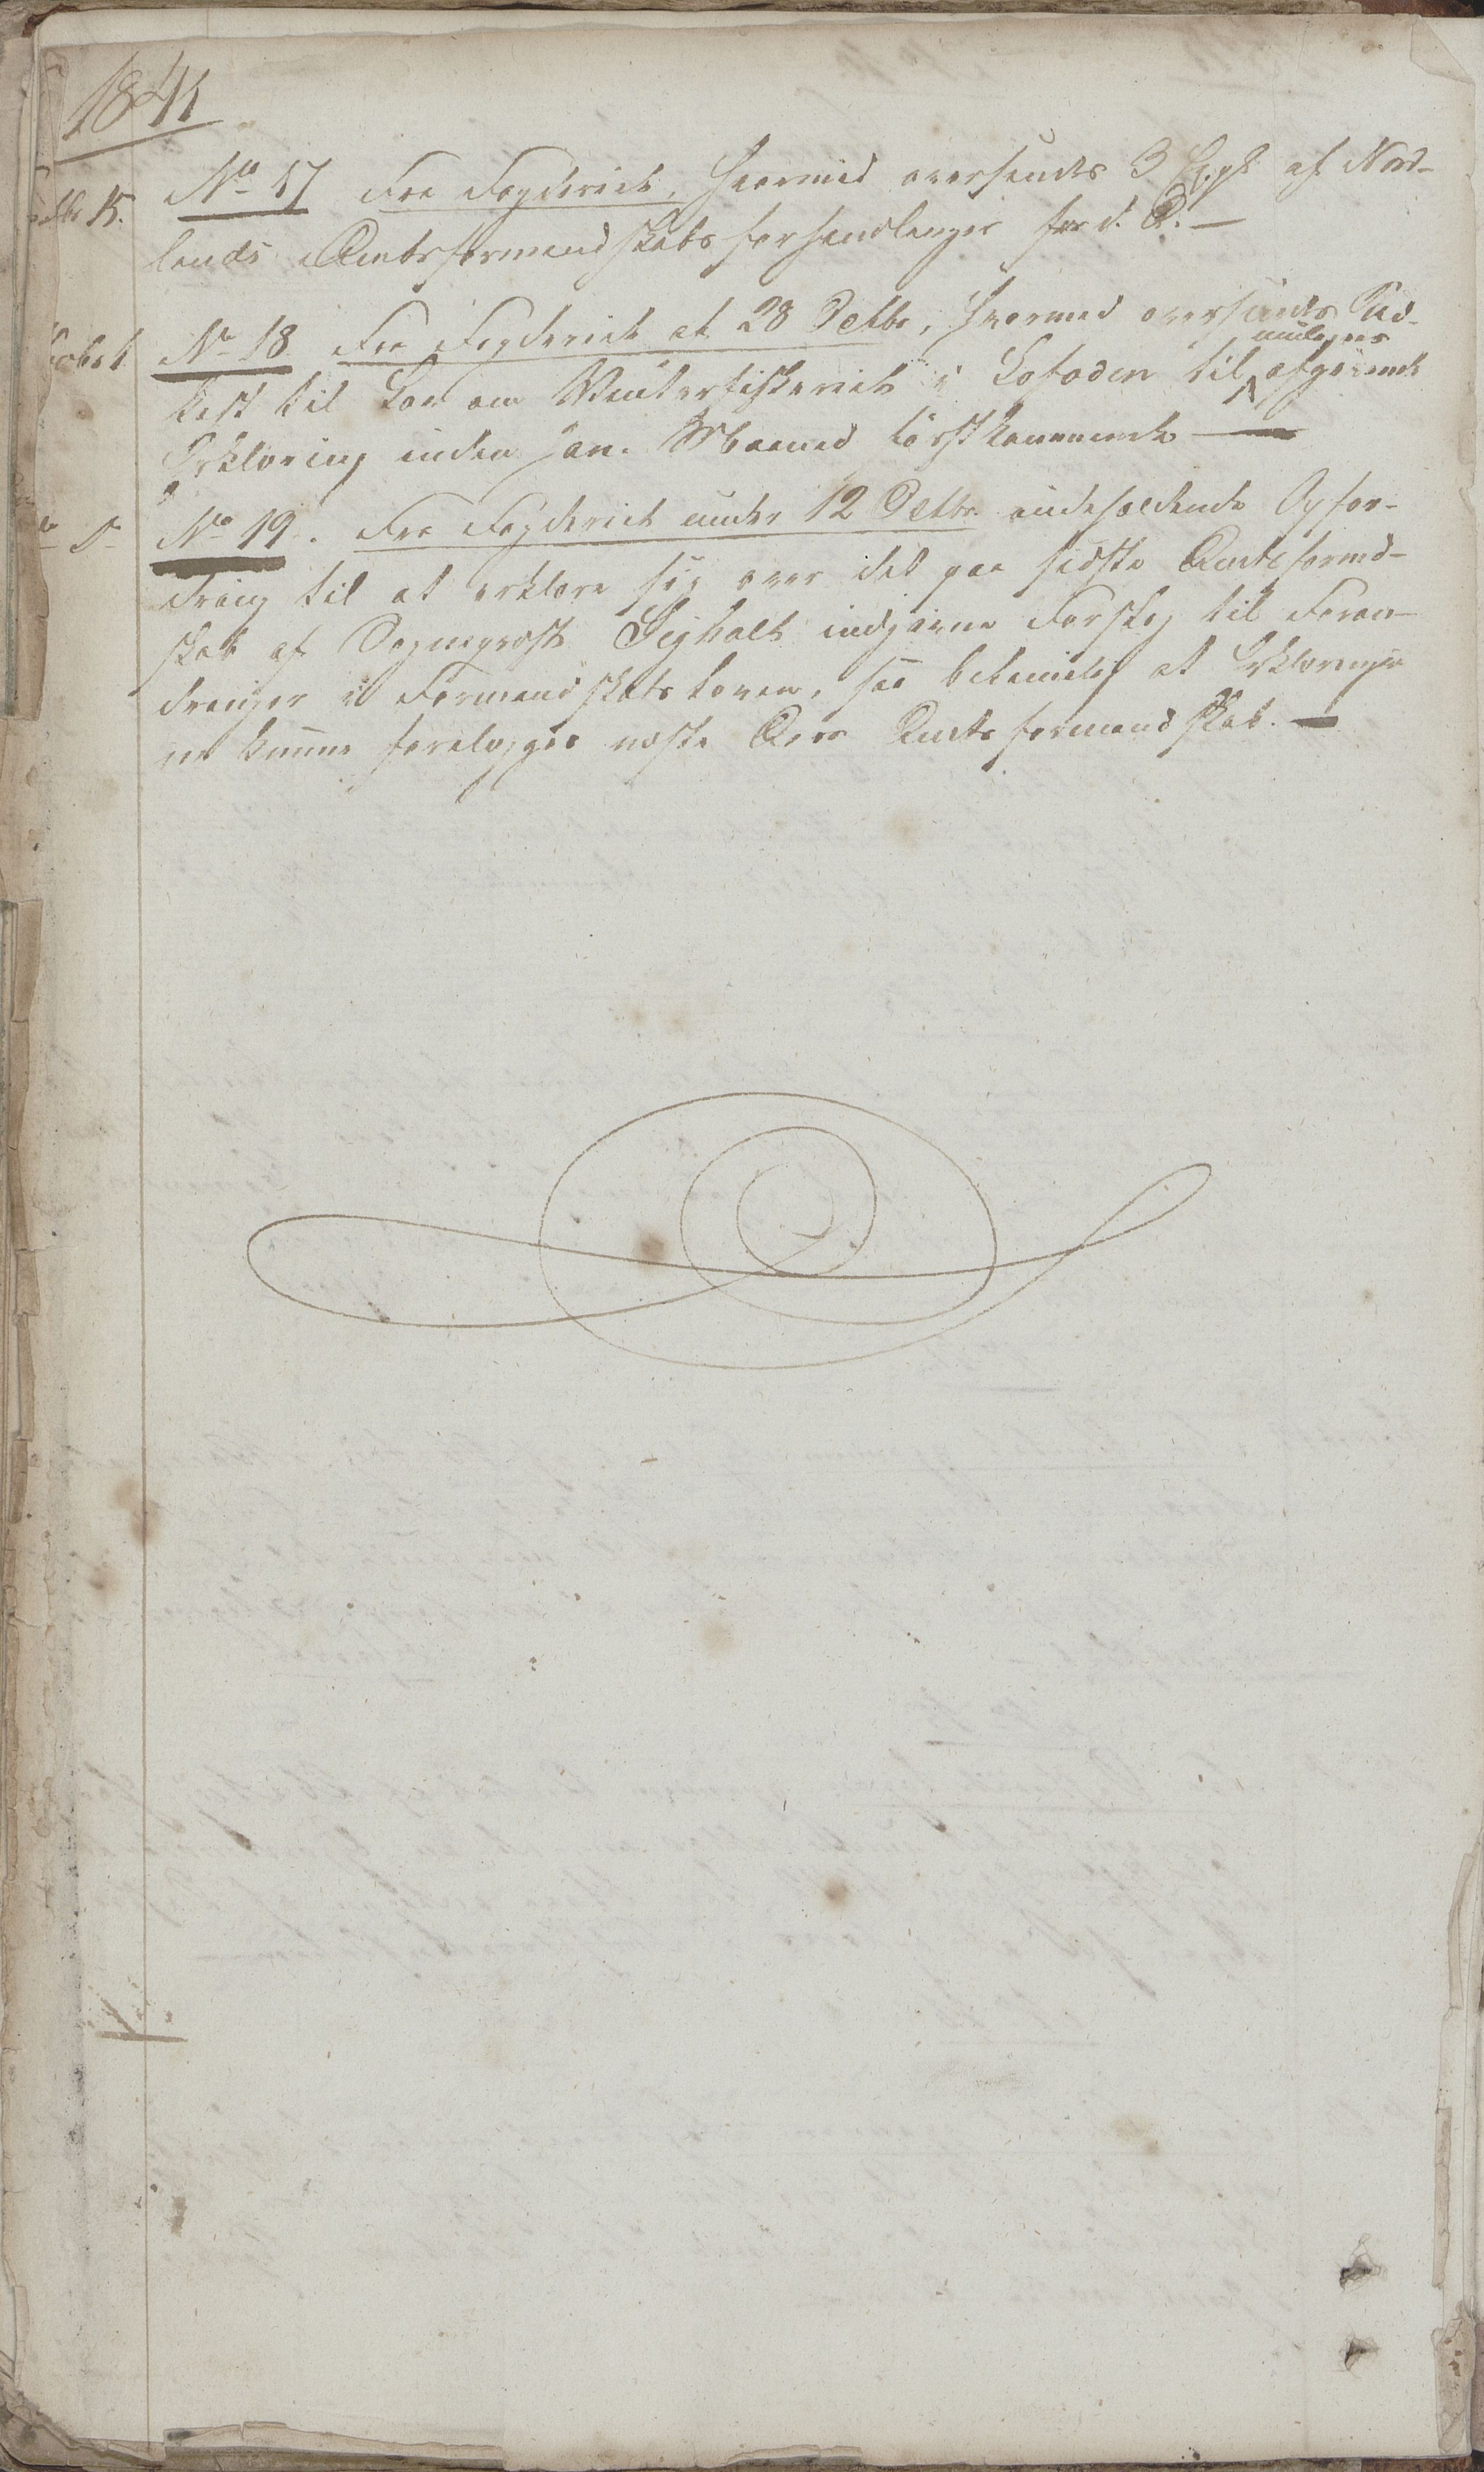 1841
15. No 17 Fra Fogderiet, hvormed oversendes 3 Expl. af Nord-
lands Amtsformandskabs forhandlinger for d. A. —
No 18 Fra Fogderiet at 28 Octbr, hvormed oversendes Ud-
muligens
kast til Lov om Vinterfiskeriet i Lofoden til afgivende
Erklæring inden Jan. Maaned førstkommende —
No 19. Fra Fogderiet under 12 Octbr indeholdende Opfor-
dring til at erklære sig over det paa sidste Amtsformd-
skab af Sogneprest indgivne Forslag til Foran-
dringer i Formandskabsloven, saa betimelig at Erklæringer
ne kunne forelægges næste Aars Amtsformandskab. —